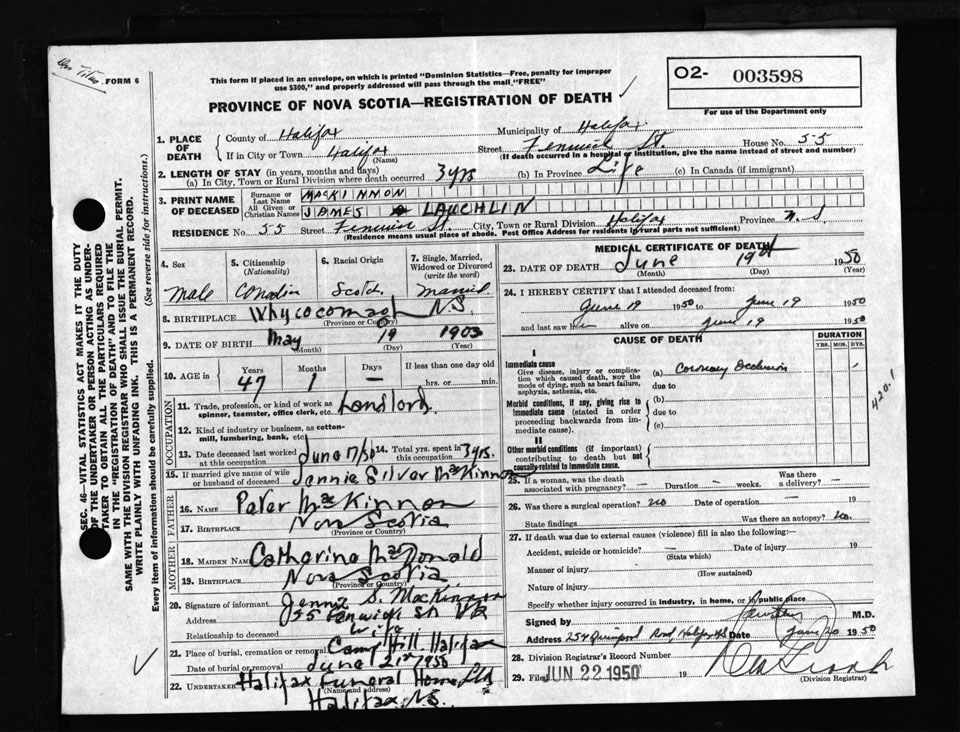 FORM 6
This form if placed in an envelope, on which is printed "Dominion Statistics—Free, penalty for improper
use $300," and properly addressed will pass through the mail "FREE"
O2- 003598
For use of the Department only
PROVINCE OF NOVA SCOTIA—REGISTRATION OF DEATH
SEC. 46—VITAL STATISTICS ACT MAKES IT THE DUTY
OF THE UNDERTAKER OR PERSON ACTING AS UNDER-
TAKER TO OBTAIN ALL THE PARTICULARS REQUIRED
IN THE "REGISTRATION OF DEATH" AND TO FILE THE
SAME WITH THE DIVISION REGISTRAR WHO SHALL ISSUE THE BURIAL PERMIT.
WRITE PLAINLY WITH UNFADING INK. THIS IS A PERMANENT RECORD.
(See reverse side for instructions.)
Every item of information should be carefully supplied.
1. PLACE OF DEATH
County of Halifax Municipality of Halifax
If in City or Town Halifax Street Fenwick St. House No. 55
(Name) (If death occurred in a hospital or institution, give the name instead of street and number)
2. LENGTH OF STAY (in years, months and days)
(a) In City, Town or Rural Division where death occurred 3 yrs (b) In Province Life (c) In Canada (if immigrant)
3. PRINT NAME OF DECEASED
Surname or Last Name MACKINNON
All Given or Christian Names JAMES LAUCHLIN
RESIDENCE No. 55 Street Fenwick St. City, Town or Rural Division Halifax Province N.S
(Residence means usual place of abode. Post Office Address for residents in rural parts not sufficient)
4. Sex Male
5. Citizenship (Nationality) Canadian
6. Racial Origin Scotch
7. Single, Married, Widowed or Divorced (write the word) Married
8. BIRTHPLACE Whycocomagh N.S.
(Province or Country)
9. DATE OF BIRTH May 19 1903
(Month) (Day) (Year)
10. AGE in Years 47 Months 1 Days — If less than one day old
hrs. or min.
OCCUPATION
11. Trade, profession, or kind of work as
spinner, teamster, office clerk, etc. Landlord
12. Kind of industry or business, as cotton-
mill, lumbering, bank, etc.
13. Date deceased last worked at this occupation June 17/50 14. Total yrs. spent in this occupation 3 yrs.
15. If married give name of wife
or husband of deceased Jennie Silver MacKinnon
FATHER
16. NAME Peter MacKinnon
17. BIRTHPLACE Nova Scotia
(Province or Country)
MOTHER
18. MAIDEN NAME Catharine MacDonald
19. BIRTHPLACE Nova Scotia
(Province or Country)
20. Signature of informant Jennie S. MacKinnon
Address 55 Fenwick St
Relationship to deceased Wife
21. Place of burial, cremation or removal Camp Hill Halifax
Date of burial or removal June 21st 1950
22. UNDERTAKER Halifax Funeral Home Ltd
(Name and address)
Halifax N.S.
MEDICAL CERTIFICATE OF DEATH
23. DATE OF DEATH June 19th 1950
(Month) (Day) (Year)
24. I HEREBY CERTIFY that I attended deceased from:
June 19 1950 to June 19 1950
and last saw him alive on June 19 1950
CAUSE OF DEATH
DURATION
YRS. MOS. DYS.
I
Immediate cause
Give disease, injury or complica-
tion which caused death, not the
mode of dying, such as heart failure,
asphyxia, asthenia, etc.
(a) Coronary Occlusion
due to
Morbid conditions, if any, giving rise to
immediate cause (stated in order
proceeding backwards from im-
mediate cause).
(b)
due to
(c)
420.1
II
Other morbid conditions (if important)
contributing to death but not
causally-related to immediate cause.
25. If a woman, was the death
associated with pregnancy? — Duration — weeks. Was there a delivery? —
26. Was there a surgical operation? no Date of operation — 19
State findings Was there an autopsy? no.
27. If death was due to external causes (violence) fill in also the following:—
Accident, suicide or homicide? — Date of injury 19
(State which)
Manner of injury
(How sustained)
Nature of injury
Specify whether injury occurred in industry, in home, or in public place
Signed by M.D.
Address 254 Quinpool Road, Halifax NS Date June 20 1950
28. Division Registrar's Record Number
29. Filed JUN 22 1950 19
(Division Registrar)